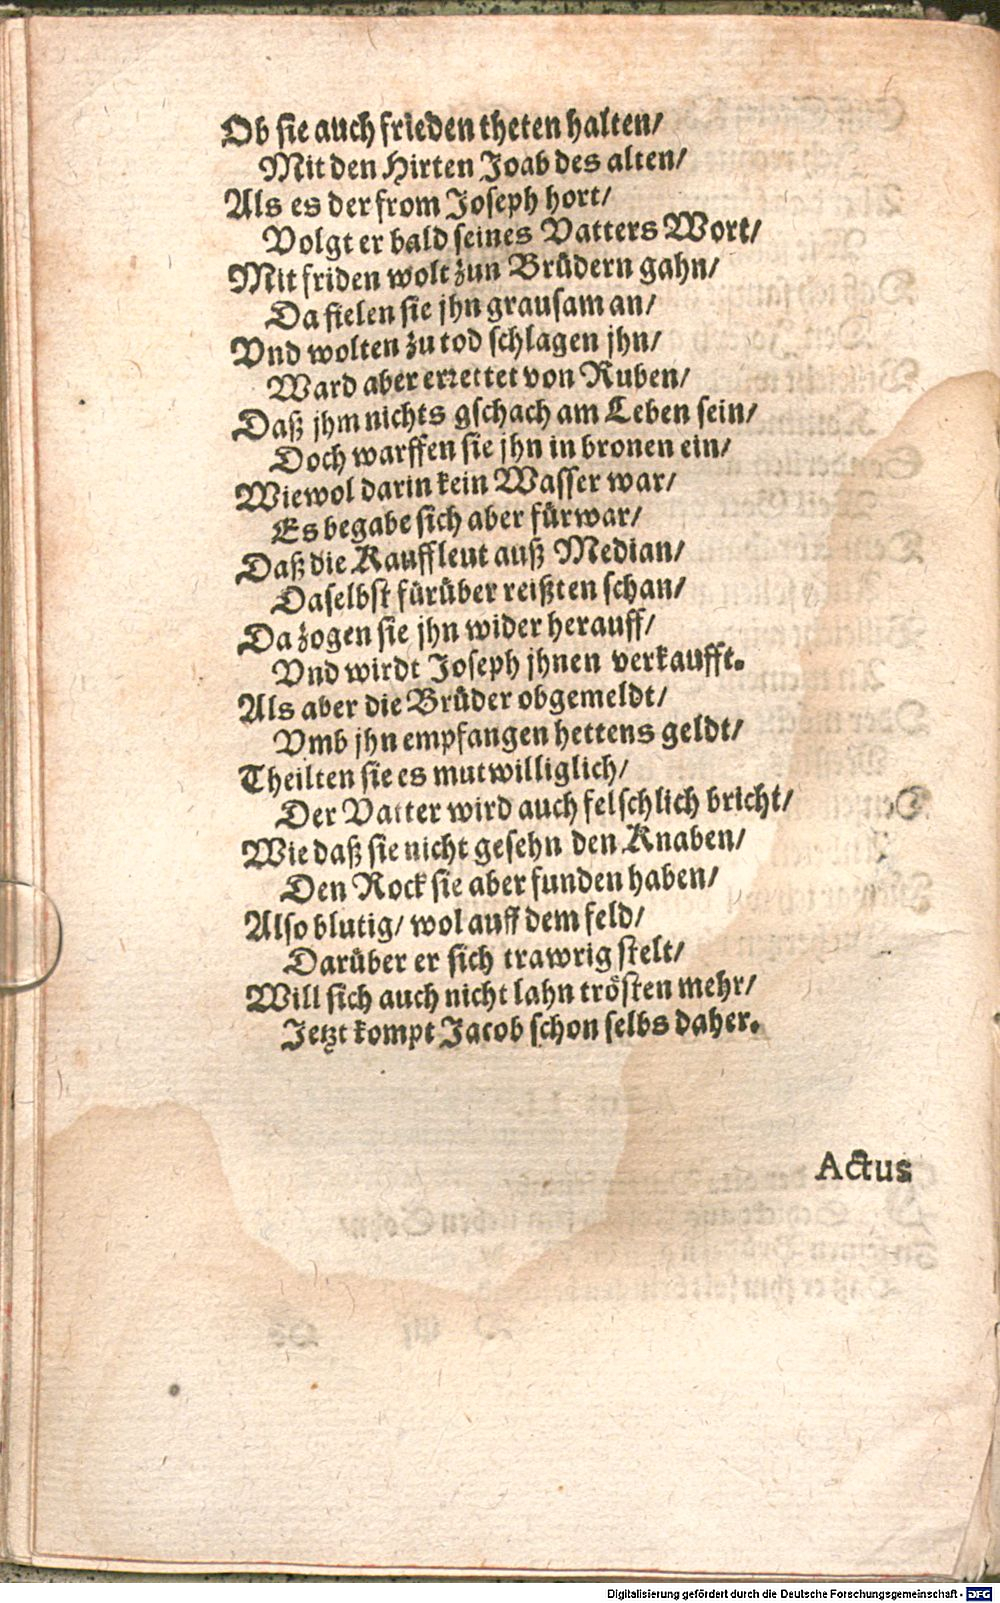 Ob sie auch frieden theten halten/
Mit den Hirten Joab des alten/
Als es der from Joseph hort/
Volgt er bald seines Vatters Wort/
Mit friden wolt zun Brüdern gahn/
Da fielen sie jhn grausam an/
Vnd wolten zu tod schlagen jhn/
Ward aber errettet von Ruben/
Daß jhm nichts gschach am Leben sein/
Doch warffen sie jhn in bronen ein/
Wiewol darin kein Wasser war/
Es begabe sich aber fürwar/
Daß die Kauffleut auß Median/
Daselbst fürüber reißten schan/
Da zogen sie jhn wider herauff/
Vnd wirdt Joseph jhnen verkaufft.
Als aber die Brüder obgemeldt/
Vmb jhn empfangen hettens geldt/
Theilten sie es mutwilliglich/
Der Vatter wird auch felschlich bricht/
Wie daß sie nicht gesehn den Knaben/
Den Rock sie aber funden haben/
Also blutig/ wol auff dem feld/
Darüber er sich trawrig stelt/
Will sich auch nicht lahn trösten mehr/
Jetzt kompt Jacob schon selbs daher.
Actus
Digitalisierung gefördert durch die Deutsche Forschungsgemeinschaft - DFG